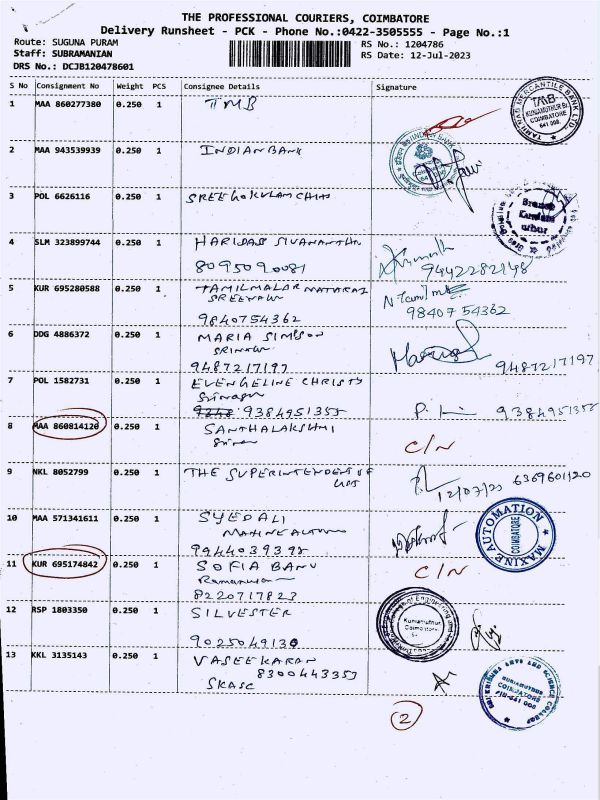 THE PROFESSIONAL COURIERS, COIMBATORE
Delivery Runsheet - PCK - Phone No.:0422-3505555 - Page No.:1
Route: SUGUNA PURAM
Staff: SUBRAMANIAN
DRS No.: DCJB120478601
RS No.: 1204786
RS Date: 12-Jul-2023
S No Consignment No Weight PCS Consignee Details Signature
1 MAA 860277380 0.250 1 TMB
TAMILNAD MERCANTILE BANK LTD.
TMB
KUNIAMUTHUR Br.
COIMBATORE
641 008.
2 MAA 943539939 0.250 1 INDIAN BANK
INDIAN BANK
3 POL 6626116 0.250 1 SREE GOKULAM CHITS
Branch
4 SLM 323899744 0.250 1 HARIDAS SIVANANTHN
8095090081 9442282148
5 KUR 695280588 0.250 1 TAMILMALAR NATARAJ
N Tamil
9840754362 9840754362
6 DDG 4886372 0.250 1 MARIA SIMSON
9487217197 9487217197
7 POL 1582731 0.250 1 EVENGELINE CHRISTY
9384951355 9384951355
8 MAA 860814120 0.250 1 SANTHALAKSHMI
C/N
9 NKL 8052799 0.250 1 THE SUPERINTENDENT OF
12/07/23 6369601120
10 MAA 571341611 0.250 1 SYED ALI
9944039395
MAXINE AUTOMATION
COIMBATORE
11 KUR 695174842 0.250 1 SOFIA BANU
C/N
8220717823
12 RSP 1803350 0.250 1 SILVESTER
Kuniamuthur
Coimbatore
9025049130
13 KKL 3135143 0.250 1 VASEEKARAN
8300443353
SKASC
SRI KRISHNA ARTS AND SCIENCE COLLEGE
KUNIAMUTHUR
COIMBATORE
PIN-641 008
2